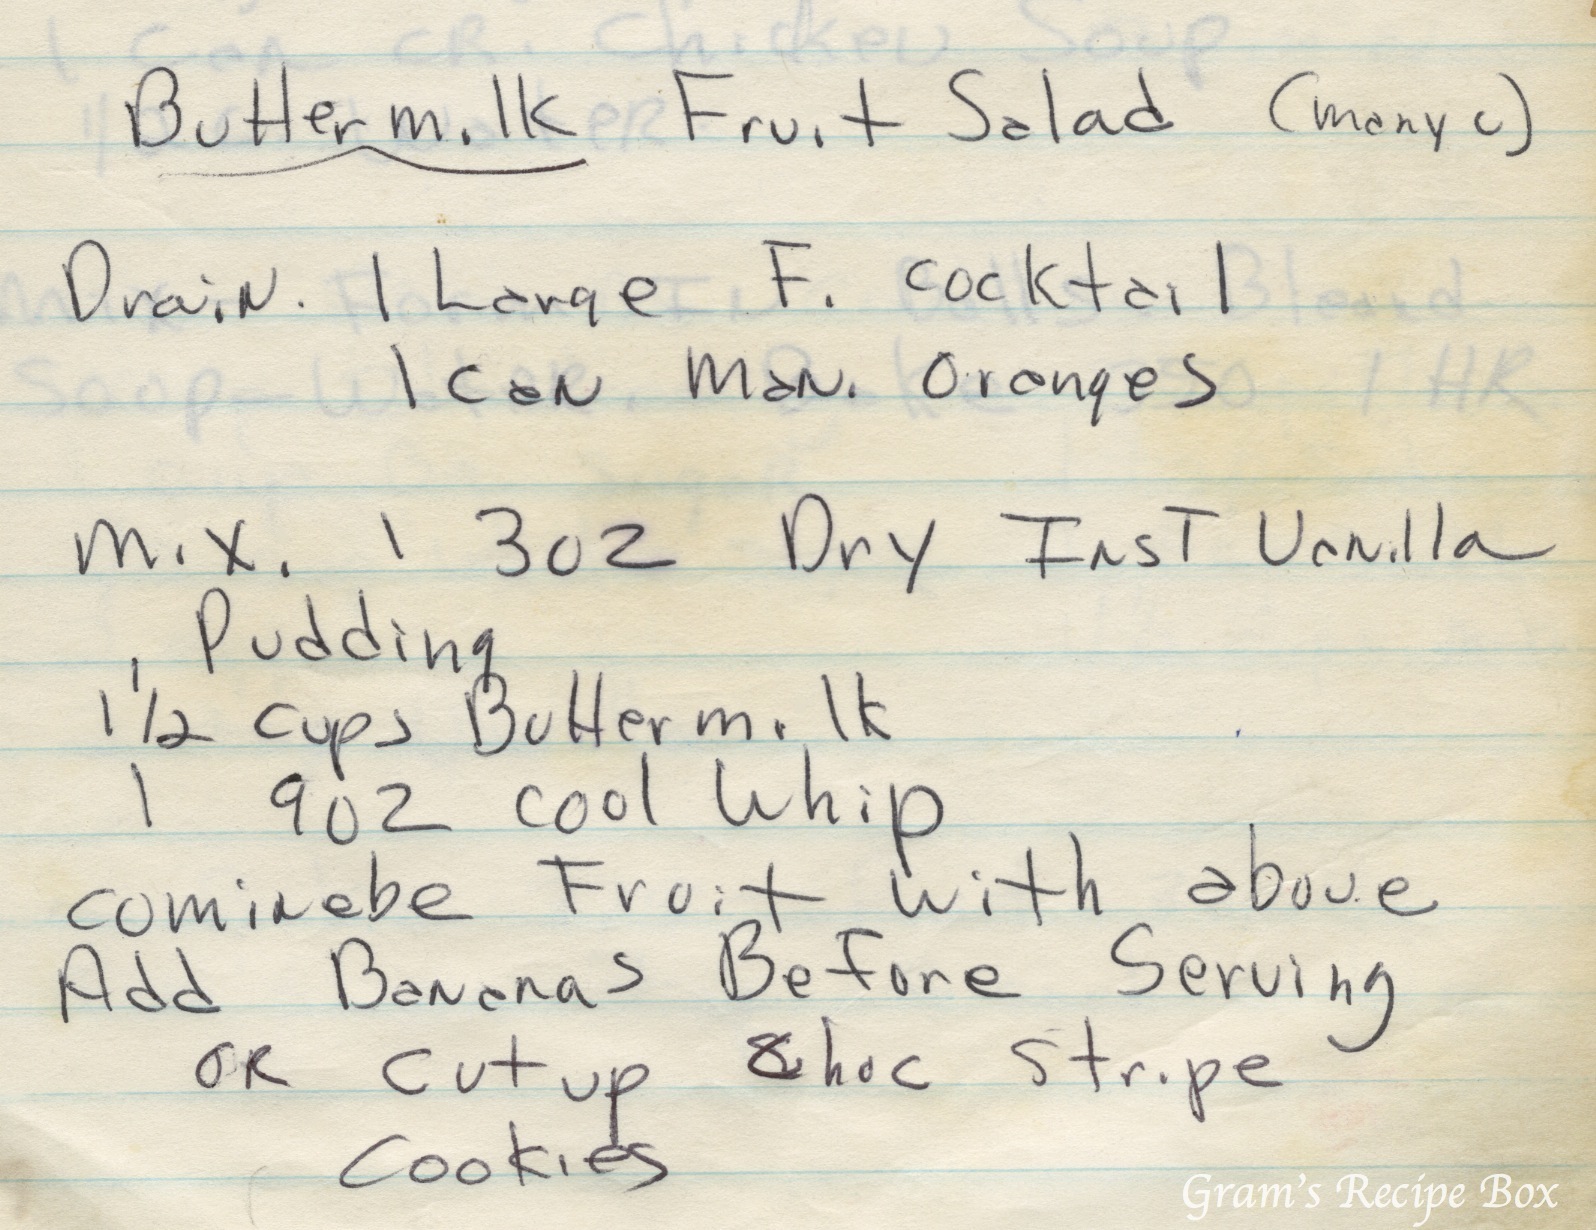 1 Can CR. Chicken Soup
Buttermilk Fruit Salad (many c)
Drain. 1 Large F. cocktail
1 can Man. Oranges
Mix. 1 3oz Dry Inst Vanilla
Pudding
1 1/2 cups Buttermilk
1 9oz cool Whip
cominebe Fruit with above
Add Bananas Before Serving
OR cut up choc stripe
Cookies
Gram's Recipe Box